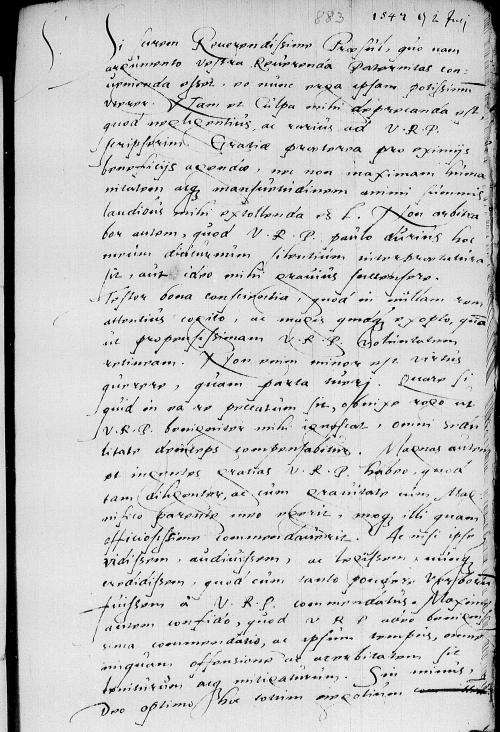 883 1547 92 Julj
Si rerem Reverendissime Præsul, quo nam
argumento vestra Reverenda Paternitas con
venienda esset, eo nunc erga ipsam potissimum
Nam et Culpa mihi deprecanda est,
quod negligentius, ac rarius ad V.R.P.
scripserim. Gratiæ præterea pro eximijs
beneficijs agendæ, nec non maximam huma
nitatem atq mansuetudinem animi summis
laudibus mihi extollenda Non arbitra
bor autem, quod V.R.P. paulo durius hoc
meum diuturnum silentium interpretatura
sit, aut ideo mihi gravius succensere.
Testor bona conscientia, quod in nullam rem
attentius cogito, ac magis exopto, quã
ut propensissimam V.R.P. Voluntatem
retineam. Non enim minor est virtus
querere, quam parta tueri. Quare si
quid in ea re peccatum sit, obnixe rogo ut
V.R.P. benigniter mihi ignoscat, omni sedu
litate deinceps compensabitur. Magnas autem
et ingentes gratias V.R.P. habeo, quod
tam diligenter, ac cum gravitate cum Mag
nifico parente meo egerit, meq illi quam
officiosissime commendaverit. Ac nisi ipse
vidissem, audiuissem, ac legissem,
credidissem, quod cum tanto pondere
fuissem a V.R.P. commendatus. Maxime
autem confido, quod V R P adeo benignis
sima commendatio, ac ipsum tempus, omnem
iniquam offensionem ac acerbitatem sit
leniturum atq mitigaturum. Sin minus,
Deo optimo hoc totum negotium